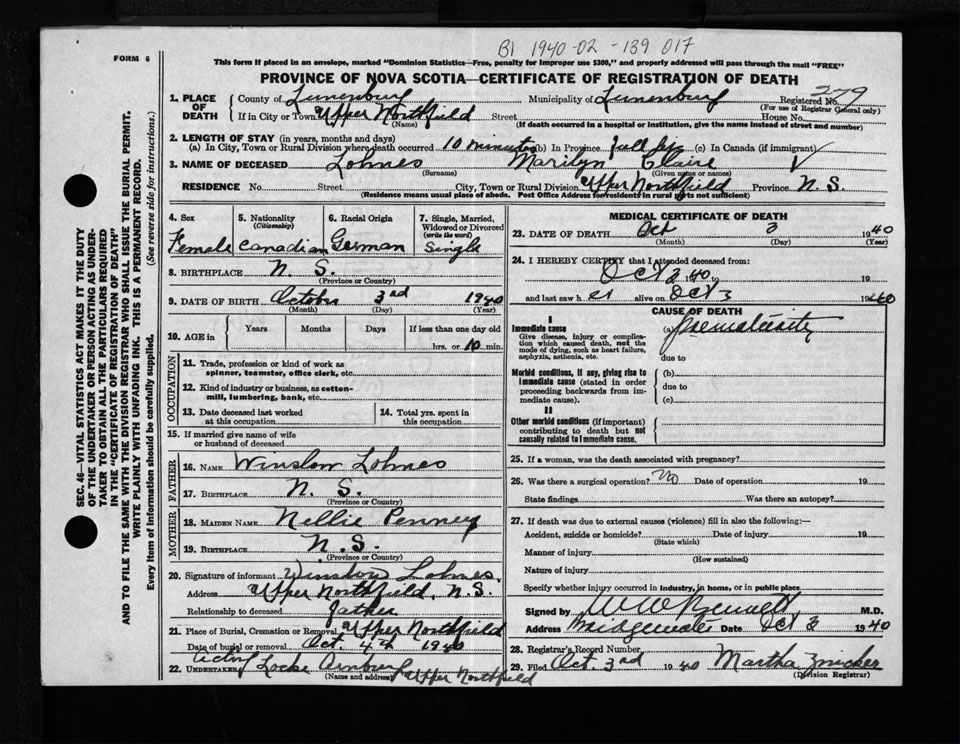 B1 1940-02-139 017
FORM 6
This form if placed in an envelope, marked "Dominion Statistics—Free, penalty for improper use $300," and properly addressed will pass through the mail "FREE"
PROVINCE OF NOVA SCOTIA—CERTIFICATE OF REGISTRATION OF DEATH
1. PLACE OF DEATH
County of Lunenburg Municipality of Lunenburg Registered No. 279
(For use of Registrar General only)
If in City or Town Upper Northfield Street House No.
(Name) (If death occurred in a hospital or institution, give the name instead of street and number)
2. LENGTH OF STAY (in years, months and days)
(a) In City, Town or Rural Division where death occurred 10 minutes (b) In Province full life (c) In Canada (if immigrant)
3. NAME OF DECEASED Lohnes Marilyn Claire
(Surname) (Given name or names)
RESIDENCE No. Street City, Town or Rural Division Upper Northfield Province N. S.
(Residence means usual place of abode. Post Office Address for residents in rural parts not sufficient)
4. Sex Female
5. Nationality (Citizenship) Canadian
6. Racial Origin German
7. Single, Married, Widowed or Divorced (write the word) Single
8. BIRTHPLACE N. S.
(Province or Country)
9. DATE OF BIRTH October 3rd 1940
(Month) (Day) (Year)
10. AGE in Years Months Days If less than one day old
hrs. or 10 min.
OCCUPATION
11. Trade, profession or kind of work as spinner, teamster, office clerk, etc.
12. Kind of industry or business, as cotton-mill, lumbering, bank, etc.
13. Date deceased last worked at this occupation
14. Total yrs. spent in this occupation
15. If married give name of wife or husband of deceased
FATHER
16. NAME Winslow Lohnes
17. BIRTHPLACE N. S.
(Province or Country)
MOTHER
18. MAIDEN NAME Nellie Penney
19. BIRTHPLACE N. S.
(Province or Country)
20. Signature of informant Winslow Lohnes
Address Upper Northfield, N. S.
Relationship to deceased father
21. Place of Burial, Cremation or Removal Upper Northfield
Date of burial or removal Oct. 4th 1940
22. UNDERTAKER Acting Locke Upper Northfield
(Name and address)
MEDICAL CERTIFICATE OF DEATH
23. DATE OF DEATH Oct 3 1940
(Month) (Day) (Year)
24. I HEREBY CERTIFY that I attended deceased from:
Oct 3 1940 to 19
and last saw her alive on Oct 3 1940
CAUSE OF DEATH
I
Immediate cause (a) Prematurity
Give disease, injury or complication which caused death, not the mode of dying, such as heart failure, asphyxia, asthenia, etc.
due to
Morbid conditions, if any, giving rise to immediate cause (stated in order proceeding backwards from immediate cause).
(b)
due to
(c)
II
Other morbid conditions (if important) contributing to death but not causally related to immediate cause.
25. If a woman, was the death associated with pregnancy?
26. Was there a surgical operation? No Date of operation 19
State findings Was there an autopsy?
27. If death was due to external causes (violence) fill in also the following:—
Accident, suicide or homicide? Date of injury 19
(State which)
Manner of injury
(How sustained)
Nature of injury
Specify whether injury occurred in industry, in home, or in public place
Signed by M.D.
Address Bridgewater Date Oct 3 1940
28. Registrar's Record Number
29. Filed Oct 3rd 1940 Martha Zwicker
(Division Registrar)
SEC. 46—VITAL STATISTICS ACT MAKES IT THE DUTY
OF THE UNDERTAKER OR PERSON ACTING AS UNDER-
TAKER TO OBTAIN ALL THE PARTICULARS REQUIRED
IN THE "CERTIFICATE OF REGISTRATION OF DEATH"
AND TO FILE THE SAME WITH THE DIVISION REGISTRAR WHO SHALL ISSUE THE BURIAL PERMIT.
WRITE PLAINLY WITH UNFADING INK. THIS IS A PERMANENT RECORD.
Every item of information should be carefully supplied. (See reverse side for instructions.)